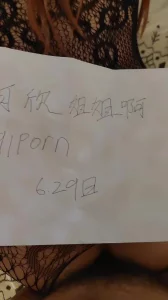 可欣姐姐啊
91porn
6.29日